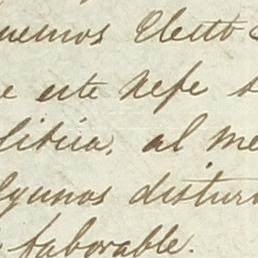 uemos Electo
e este Xefe s
litica, al me
lgunos distur
favorable.